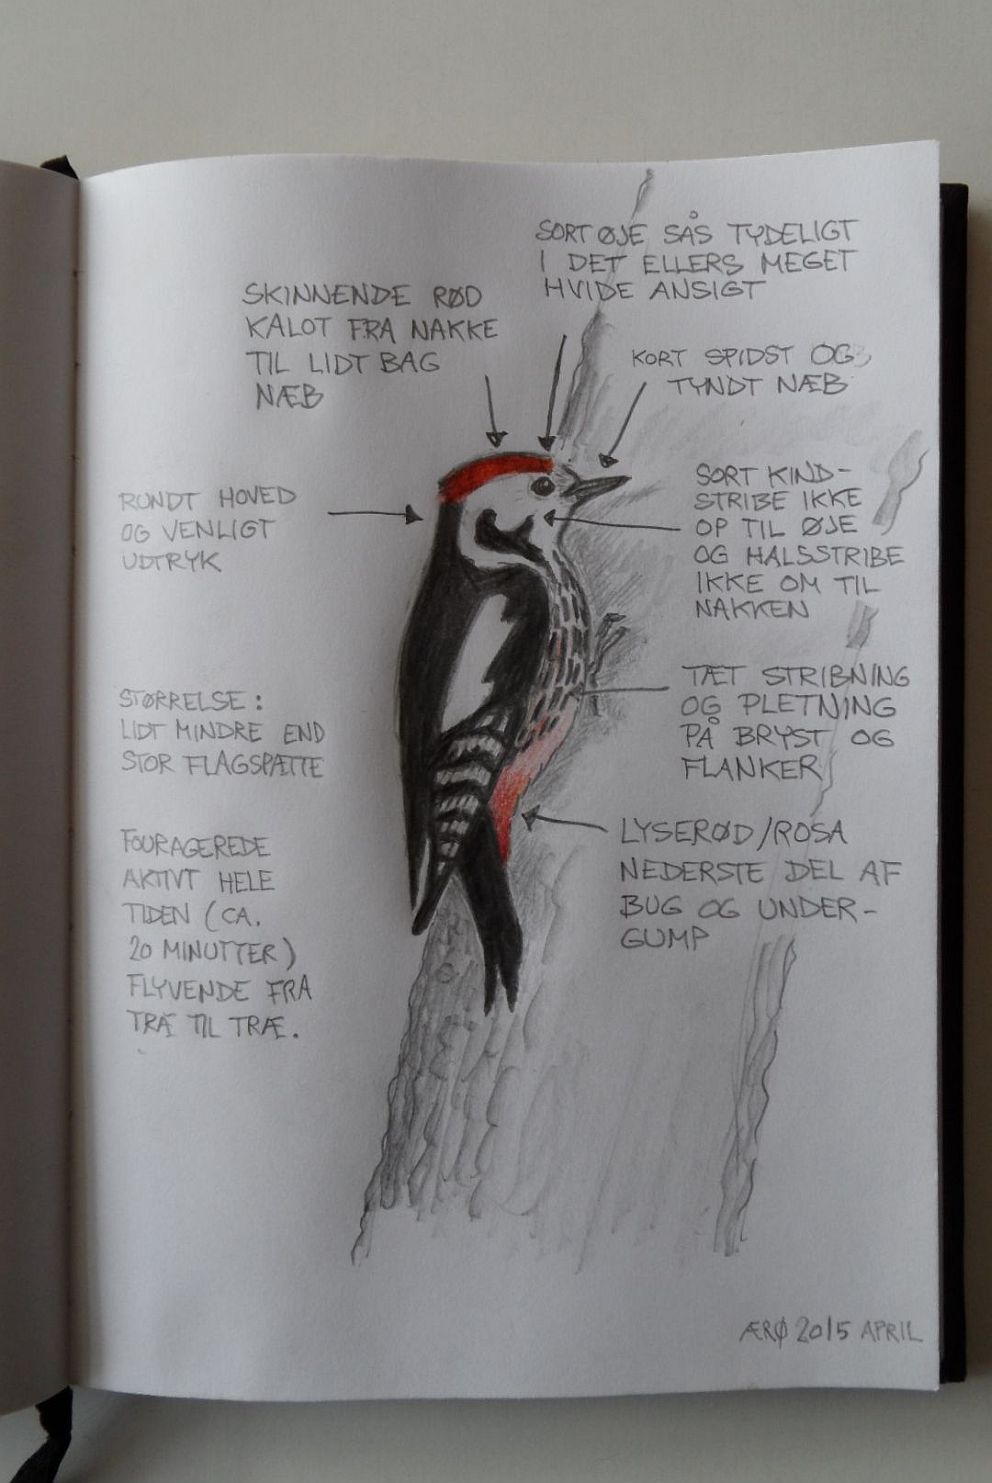 SORT ØJE SÅS TYDELIGT
I DET ELLERS MEGET
HVIDE ANSIGT
SKINNENDE RØD
KALOT FRA NAKKE
TIL LIDT BAG
NÆB
KORT SPIDST OG
TYNDT NÆB
RUNDT HOVED
OG VENLIGT
UDTRYK
SORT KIND-
STRIBE IKKE
OP TIL ØJE
OG HALSSTRIBE
IKKE OM TIL
NAKKEN
STØRRELSE:
LIDT MINDRE END
STOR FLAGSPÆTTE
TÆT STRIBNING
OG PLETNING
PÅ BRYST OG
FLANKER
FOURAGEREDE
AKTIVT HELE
TIDEN (CA.
20 MINUTTER)
FLYVENDE FRA
TRÆ TIL TRÆ.
LYSERØD/ROSA
NEDERSTE DEL AF
BUG OG UNDER-
GUMP
ÆRØ 2015 APRIL